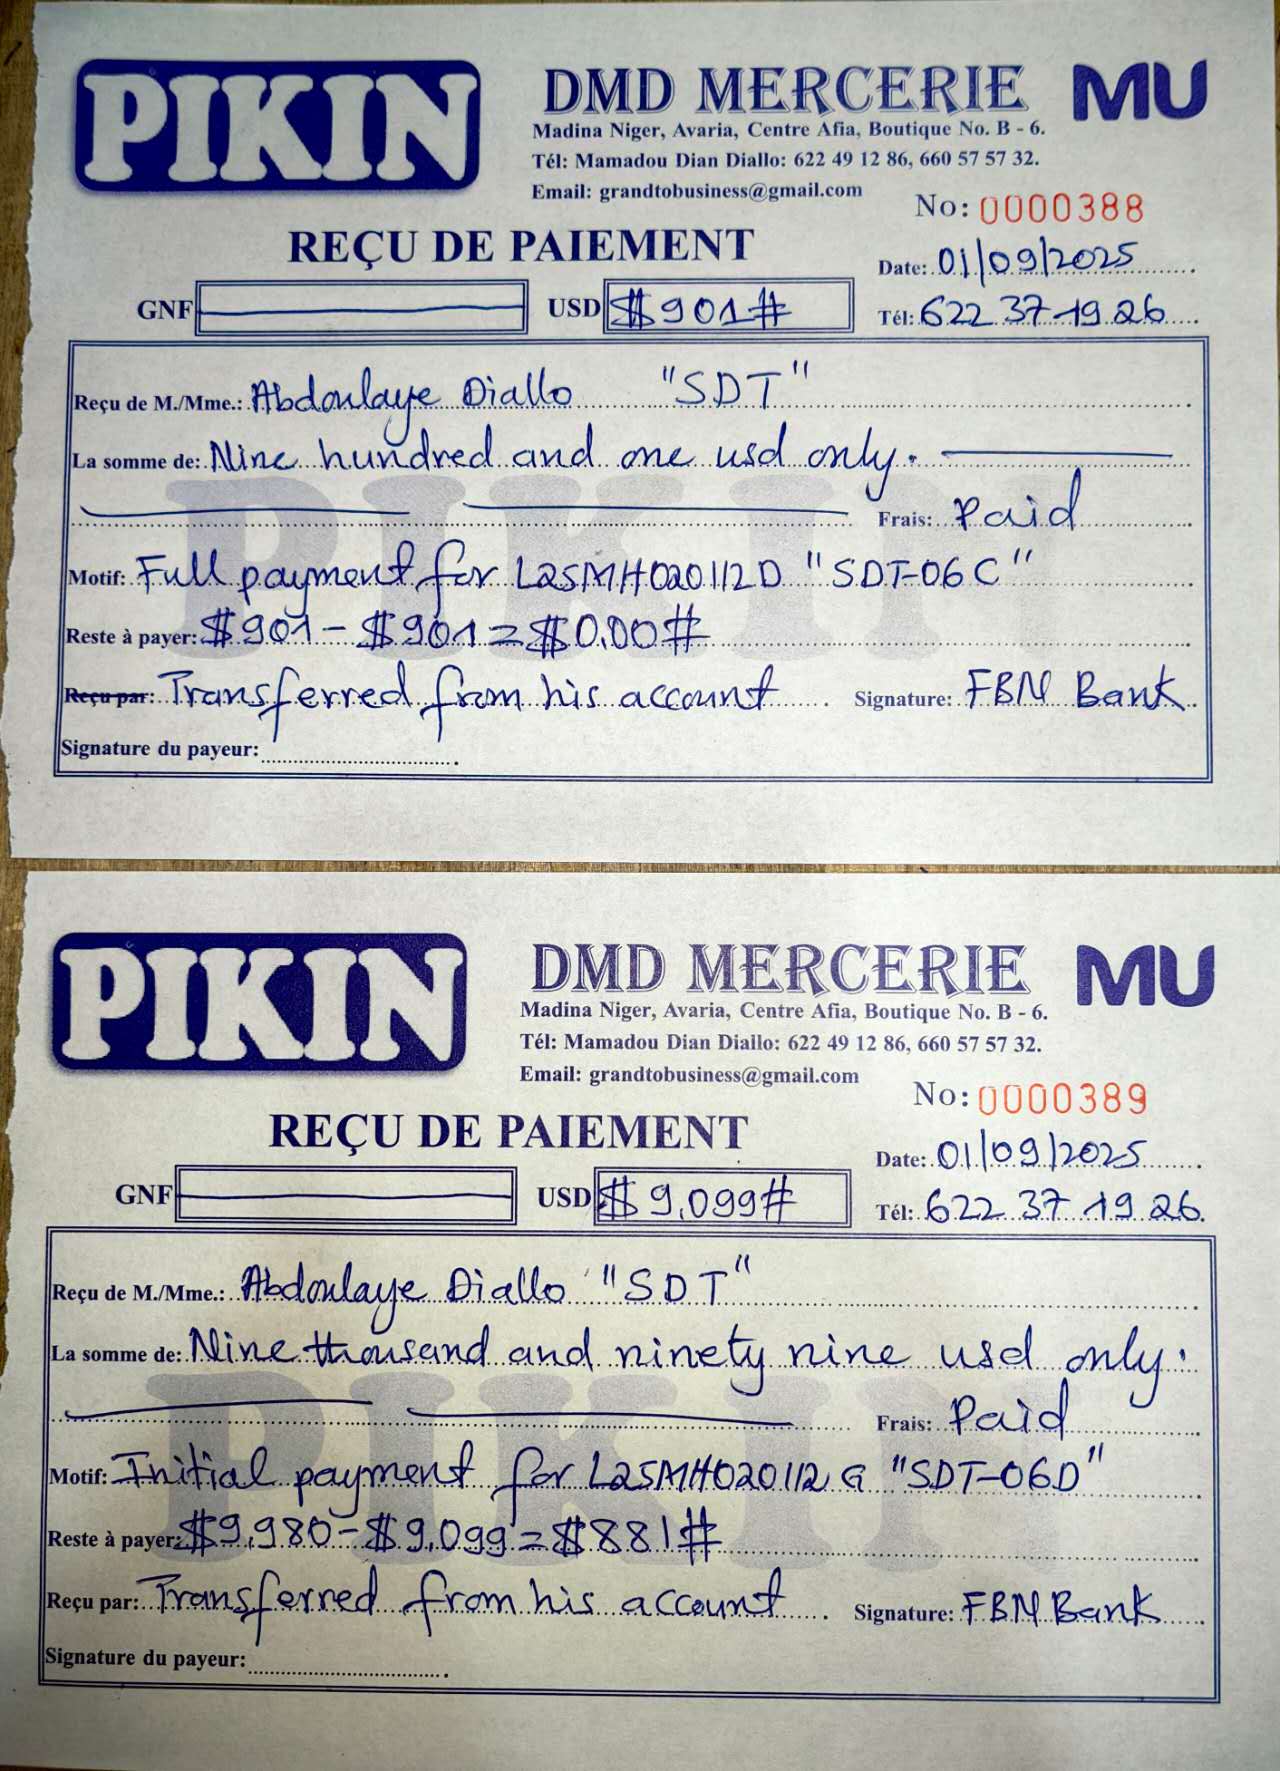 PIKIN
DMD MERCERIE MU
Madina Niger, Avaria, Centre Afia, Boutique No. B - 6.
Tél: Mamadou Dian Diallo: 622 49 12 86, 660 57 57 32.
Email: grandtobusiness@gmail.com
No: 0000388
REÇU DE PAIEMENT
Date: 01/09/2025
GNF USD $901#
Tél: 622 37 19 26
Reçu de M./Mme.: Abdoulaye Diallo "SDT"
La somme de: Nine hundred and one usd only.
Frais: Paid
Motif: Full payment for L25MH020112D "SDT-06C"
Reste à payer: $901-$901=$0.00#
Reçu par: Transferred from his account Signature: FBN Bank
Signature du payeur:
PIKIN
PIKIN
DMD MERCERIE MU
Madina Niger, Avaria, Centre Afia, Boutique No. B - 6.
Tél: Mamadou Dian Diallo: 622 49 12 86, 660 57 57 32.
Email: grandtobusiness@gmail.com
No: 0000389
REÇU DE PAIEMENT
Date: 01/09/2025
GNF USD $9,099#
Tél: 622 37 19 26.
Reçu de M./Mme.: Abdoulaye Diallo "SDT"
La somme de: Nine thousand and ninety nine usd only.
Frais: Paid
Motif: Initial payment for L25MH020112G "SDT-06D"
Reste à payer: $9,980-$9,099=$881#
Reçu par: Transferred from his account Signature: FBN Bank
Signature du payeur:
PIKIN